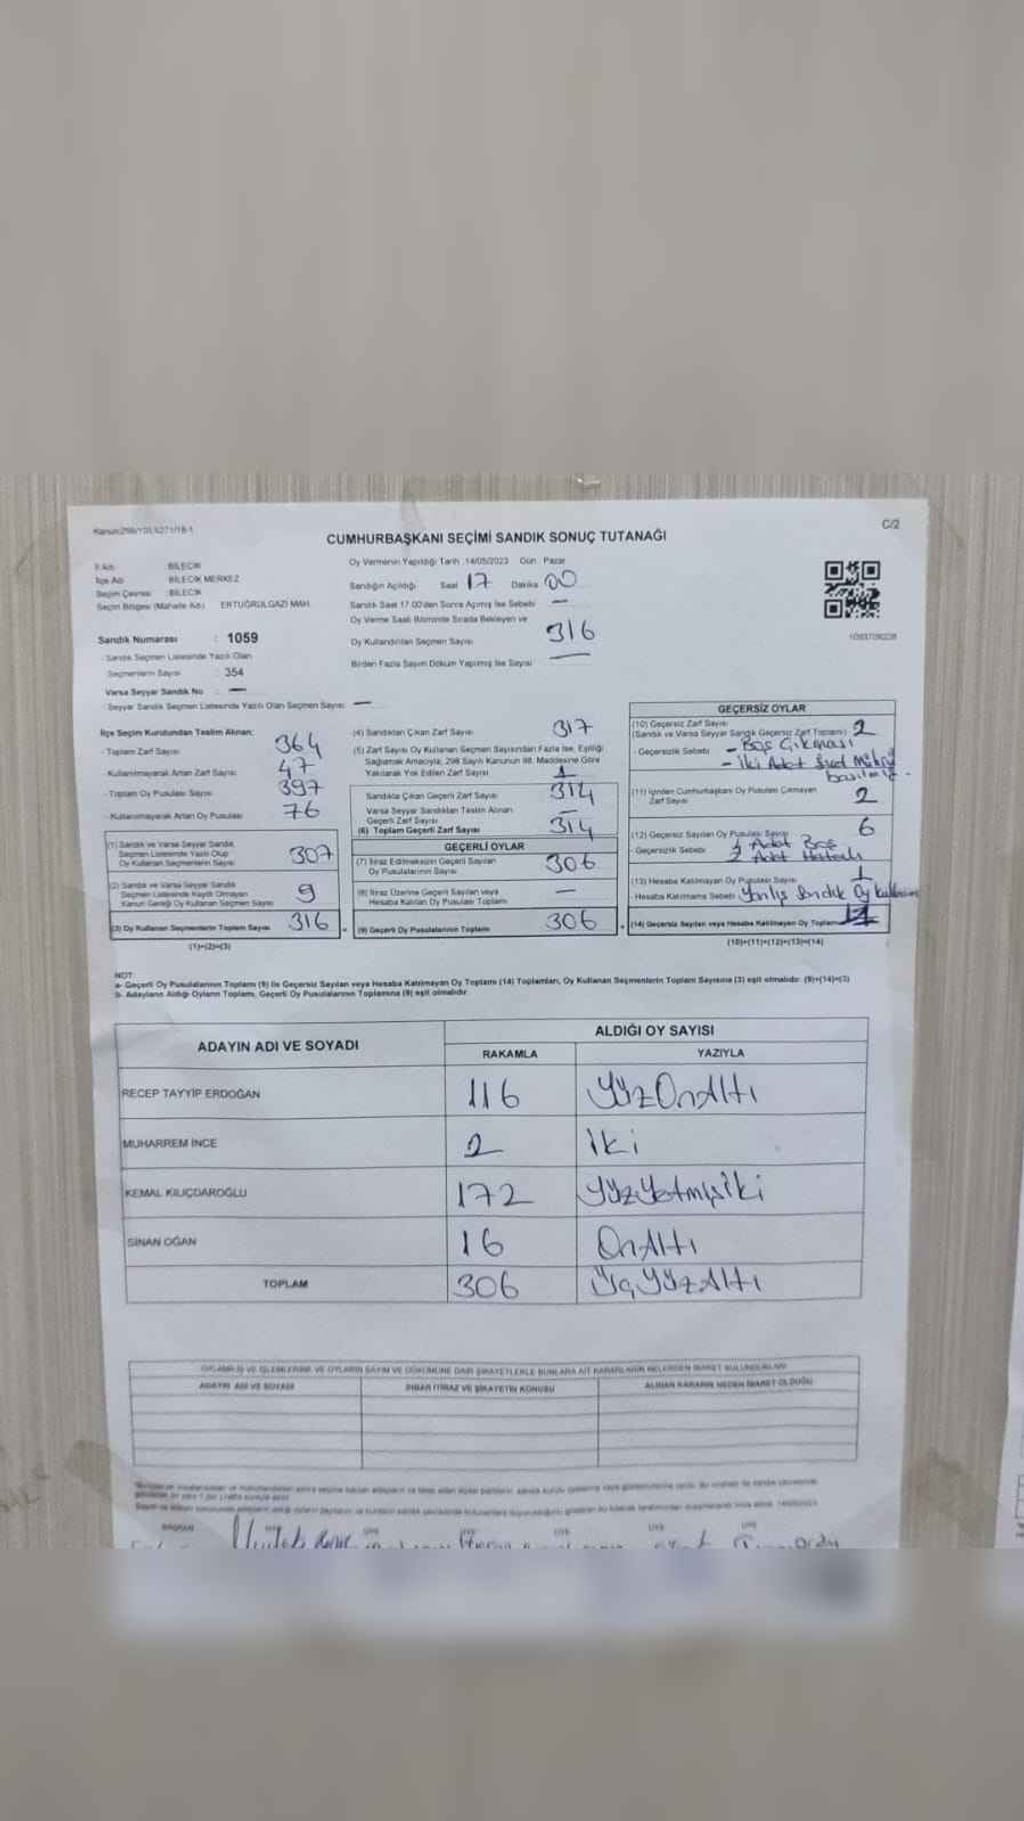 C/2
CUMHURBAŞKANI SEÇİMİ SANDIK SONUÇ TUTANAĞI
İl Adı : BİLECİK
İlçe Adı : BİLECİK MERKEZ
Seçim Çevresi : BİLECİK
Seçim Bölgesi (Mahalle Adı) : ERTUĞRULGAZİ MAH.
Sandık Numarası : 1059
Sandık Seçmen Listesinde Yazılı Olan
Seçmenlerin Sayısı : 354
Varsa Seyyar Sandık No : —
Seyyar Sandık Seçmen Listesinde Yazılı Olan Seçmen Sayısı: —
Oy Vermenin Yapıldığı Tarih : 14/05/2023 Gün : Pazar
Sandığın Açıldığı Saat 17 Dakika 00
Sandık Saat 17.00'den Sonra Açılmış İse Sebebi —
Oy Verme Saati Bitiminde Sırada Bekleyen ve
Oy Kullandırılan Seçmen Sayısı 316
Birden Fazla Sayım Döküm Yapılmış İse Sayısı —
İlçe Seçim Kurulundan Teslim Alınan:
- Toplam Zarf Sayısı 364
- Kullanılmayarak Artan Zarf Sayısı 47
- Toplam Oy Pusulası Sayısı 397
- Kullanılmayarak Artan Oy Pusulası 76
(1) Sandık ve Varsa Seyyar Sandık
Seçmen Listesinde Yazılı Olup
Oy Kullanan Seçmenlerin Sayısı 307
(2) Sandık ve Varsa Seyyar Sandık
Seçmen Listesinde Kayıtlı Olmayan
Kanun Gereği Oy Kullanan Seçmen Sayısı 9
(3) Oy Kullanan Seçmenlerin Toplam Sayısı 316
(1)+(2)=(3)
(4) Sandıktan Çıkan Zarf Sayısı 317
(5) Zarf Sayısı Oy Kullanan Seçmen Sayısından Fazla İse, Eşitliği
Sağlamak Amacıyla, 298 Sayılı Kanunun 98. Maddesine Göre
Yakılarak Yok Edilen Zarf Sayısı 1
Sandıkta Çıkan Geçerli Zarf Sayısı 314
Varsa Seyyar Sandıktan Teslim Alınan
Geçerli Zarf Sayısı —
(6) Toplam Geçerli Zarf Sayısı 314
GEÇERLİ OYLAR
(7) İtiraz Edilmeksizin Geçerli Sayılan
Oy Pusulalarının Sayısı 306
(8) İtiraz Üzerine Geçerli Sayılan veya
Hesaba Katılan Oy Pusulası Toplamı —
(9) Geçerli Oy Pusulalarının Toplamı 306
GEÇERSİZ OYLAR
(10) Geçersiz Zarf Sayısı
(Sandık ve Varsa Seyyar Sandık Geçersiz Zarf Toplamı) 2
- Geçersizlik Sebebi - Boş Çıkması
- İki Adet Mührü
(11) İçinden Cumhurbaşkanı Oy Pusulası Çıkmayan
Zarf Sayısı 2
(12) Geçersiz Sayılan Oy Pusulası Sayısı 6
- Geçersizlik Sebebi Adet Boş
Adet Hatalı
(13) Hesaba Katılmayan Oy Pusulası Sayısı 1
- Hesaba Katılmama Sebebi Yanlış Sandık Oy
(14) Geçersiz Sayılan veya Hesaba Katılmayan Oy Toplamı
(10)+(11)+(12)+(13)=(14)
NOT:
a- Geçerli Oy Pusulalarının Toplamı (9) ile Geçersiz Sayılan veya Hesaba Katılmayan Oy Toplamı (14) Toplamları, Oy Kullanan Seçmenlerin Toplam Sayısına (3) eşit olmalıdır. (9)+(14)=(3)
b- Adayların Aldığı Oyların Toplamı, Geçerli Oy Pusulalarının Toplamına (9) eşit olmalıdır.
ADAYIN ADI VE SOYADI ALDIĞI OY SAYISI
RAKAMLA YAZIYLA
RECEP TAYYİP ERDOĞAN 116 YüzOnAltı
MUHARREM İNCE 2 İki
KEMAL KILIÇDAROĞLU 172 YüzYetmişİki
SİNAN OĞAN 16 OnAltı
TOPLAM 306 ÜçYüzAltı
ADAYIN ADI VE SOYADI İHBAR İTİRAZ VE ŞİKAYETİN KONUSU ALINAN KARARIN NEDEN İBARET OLDUĞU
BAŞKAN ÜYE ÜYE ÜYE ÜYE